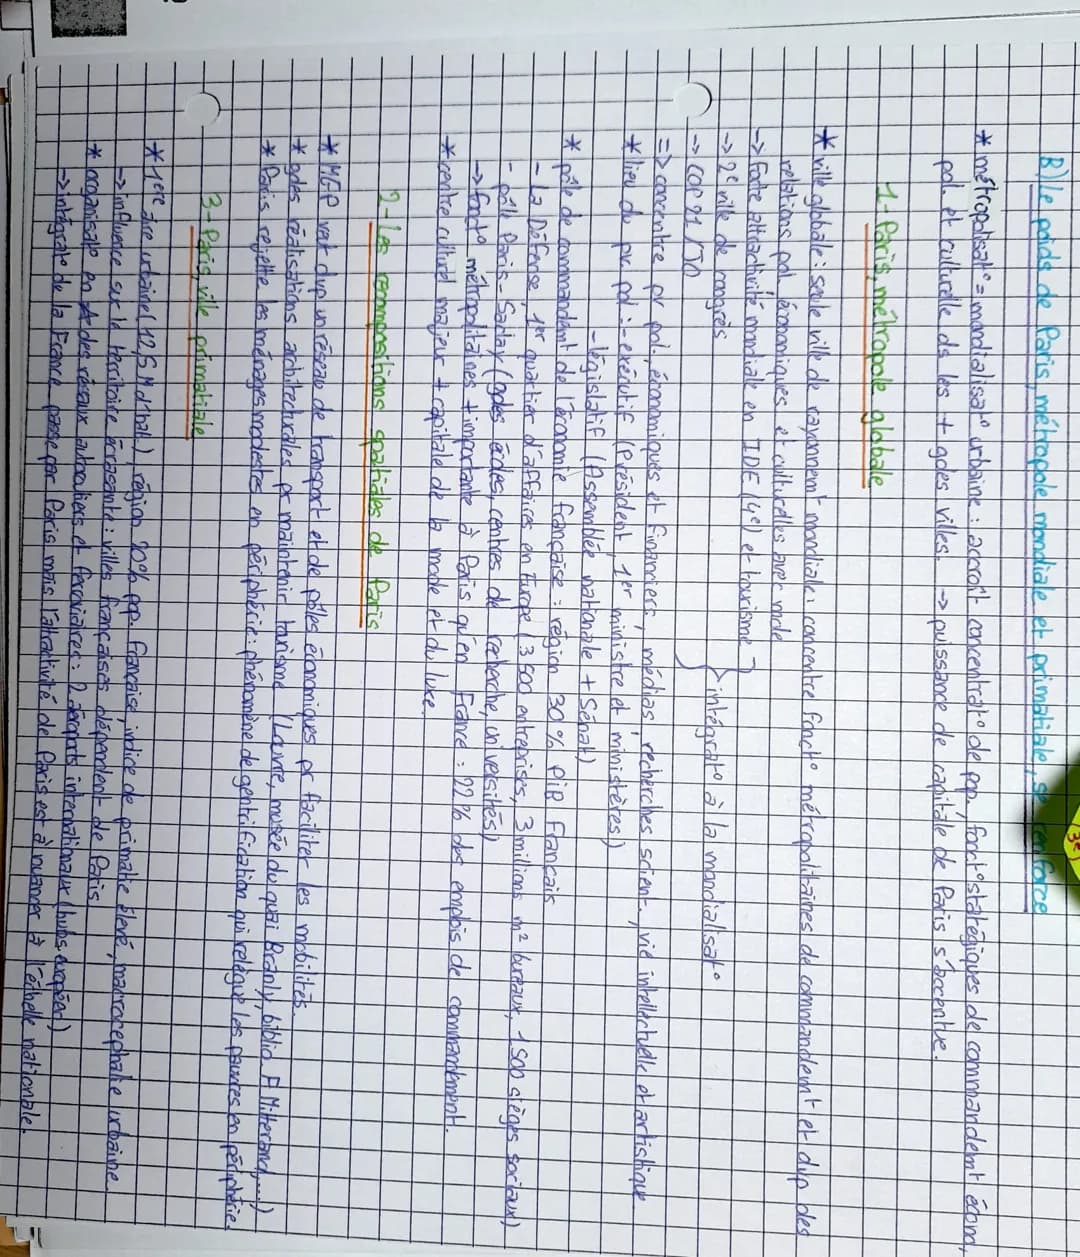 B) Le poids de Paris, métropole mondiale et primatiale, se renforce
3e
* métropolisat° = mondialisat° urbaine : accroît concentrat° de pop, fonct° stratégiques de commandemt écono,
pol. et culturelle ds les + gdes villes. -> puissance de capitale de Paris s'accentue.
1- Paris, métropole globale
* ville globale : seule ville de rayonnemt mondiale : concentre fonct° métropolitaines de commandemt et dvp des
relations pol, économiques et culturelles avec monde
-> Forte attractivité mondiale en IDE (4e) et tourisme
-> 2e ville de congrès
-> COP 21 / JO
} intégrat° à la mondialisat°
=> concentre pr pol., économiques et financiers, médias, recherches scient., vie intellectuelle et artistique
* lieu du pv pol : - exécutif (Président, 1er ministre et ministères)
- législatif (Assemblée nationale + Sénat)
* pôle de commandemt de l'économie française : région 30% PIB Français
- La Défense, 1er quartier d'affaires en Europe (3 500 entreprises, 3 millions m² bureaux, 1 500 sièges sociaux)
- pôle Paris-Saclay (gdes écoles, centres de recherche, universités)
-> fonct° métropolitaines + importante à Paris qu'en France : 22% des emplois de commandement.
* centre culturel majeur + capitale de la mode et du luxe.
2- Les recompositions spatiales de Paris
* MGP veut dvp un réseau de transport et de pôles économiques pr faciliter les mobilités.
* gdes réalisations architecturales pr maintenir tourisme (Louvre, musée du quai Branly, biblio. F Mitterand, ...)
* Paris rejette les ménages modestes en périphérie : phénomène de gentrification qui relègue les pauvres en périphérie.
3- Paris, ville primatiale
* 1ère aire urbaine (12,5 M d'hab.), région 20% pop. française, indice de primatie élevé, macrocéphalie urbaine.
-> influence sur le territoire écrasante : villes françaises dépendent de Paris
* organisat° en des réseaux autoroutiers et ferroviaires : 2 aéroports internationaux (hubs européen)
-> intégrat° de la France passe par Paris mais l'attractivité de Paris est à nuancer à l'échelle nationale.